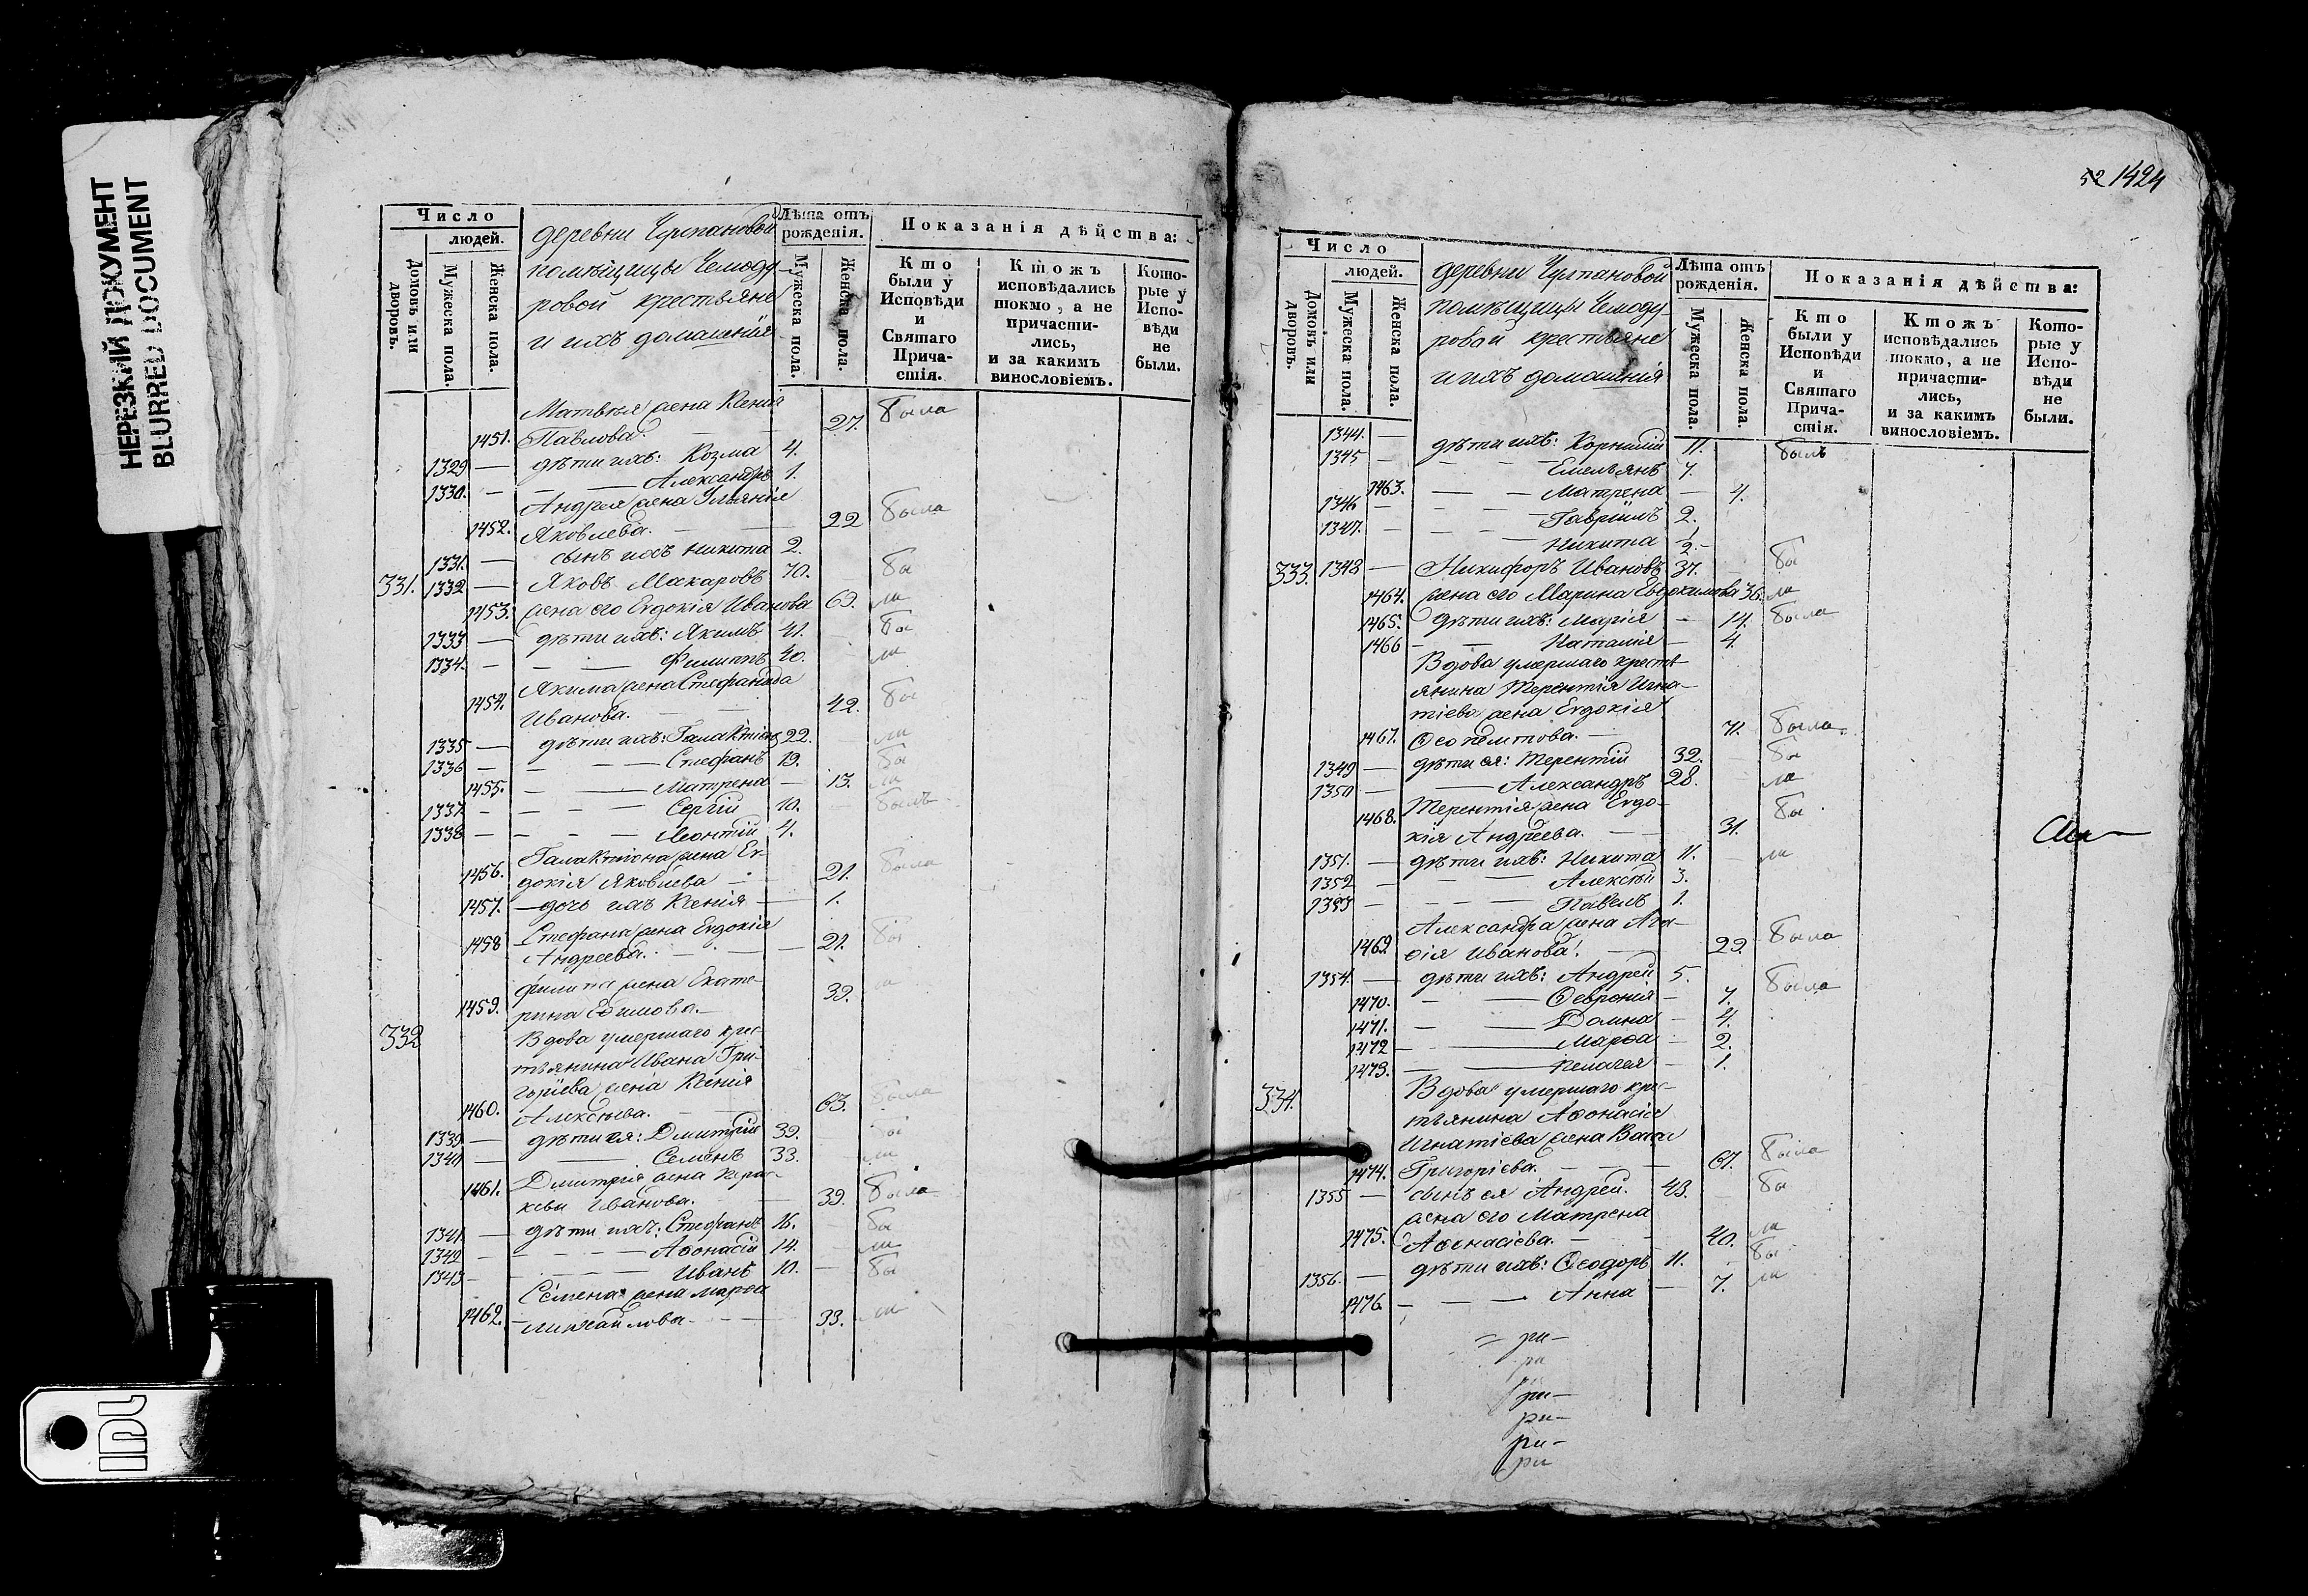 НЕРЕЗКИЙ ДОКУМЕНТ
BLURRED DOCUMENT
Число
людей.
Домовъ или дворовъ.
Мужеска пола.
Женска пола.
деревни
помѣщицы Чемоду-
ровой крестьяне
и ихъ домашнія
Лѣта отъ рожденія.
Мужеска пола.
Женска пола.
Показанія дѣйства:
Кто были у Исповѣди и Святаго Прича- стія.
Ктожъ исповѣдались токмо, а не причасти- лись, и за какимъ винословіемъ.
Кото- рые у Испо- вѣди не были.
Матвѣя жена Ксенія
1451. Павлова. — 27. была
1329 — дѣти ихъ: Козма 4.
1330. — — Александръ 1.
Андрея жена Ульянія
1452. Яковлева. — 22 была
1331. — сынъ ихъ Никита 2.
331. 1332 — Яковъ Макаровъ 70. бы
1453. жена его Евдокія Иванова 69. ли
1333 — дѣти ихъ: Якимъ 41. бы
1334. — — Филиппъ 40. ли
Якима жена Стефанида
1454. Иванова. — 42. бы
1335 — дѣти ихъ: Галактіонъ 22. ли
1336 — — Стефанъ 19. бы
1455. — — Матрена — 13. ли
1337 — — Сергій 10. былъ
1338 — — Леонтій 4.
Галактіона жена Ев-
1456. докія Яковлева — 21. была
1457. — дочь ихъ Ксенія — 1.
1458 Стефана жена Евдокія
Андреева. — 21. бы
Филипа жена Екате-
1459. рина Ефимова. — 39. ли
332 Вдова умершаго крес-
тьянина Ивана Гри-
горіева жена Ксенія
1460. Алексѣева. — 63. была
1339 — дѣти ея: Дмитрій 39. бы
1340 — — Семенъ 33. ли
1461. Дмитрія жена Парас-
кеви Иванова. — 39. была
1341 — дѣти ихъ: Стефанъ 16. бы
1342 — — Афонасій 14. ли
1343 — — Иванъ 10. бы
Семена жена Марѳа
1462. — Михайлова. — 33. ли
52 1424
Число
людей.
Домовъ или дворовъ.
Мужеска пола.
Женска пола.
деревни
помѣщицы Чемоду-
ровой крестьяне
и ихъ домашнія
Лѣта отъ рожденія.
Мужеска пола.
Женска пола.
Показанія дѣйства:
Кто были у Исповѣди и Святаго Прича- стія.
Ктожъ исповѣдались токмо, а не причасти- лись, и за какимъ винословіемъ.
Кото- рые у Испо- вѣди не были.
1344. — дѣти ихъ: Корнилій 11. былъ
1345 — — Емельянъ 7.
1463. — — Матрена — 4.
1346 — — Гавріилъ 2.
1347. — — Никита 1/2. —
333. 1348 — Никифоръ Ивановъ 37. бы
1464. жена его Марина Евдокимова 36. ли
1465. дѣти ихъ: Марія — 14. была
1466 — — Наталія — 4.
Вдова умершаго кресть-
янина Терентія Игна-
тіева жена Евдокія
1467. — 71. была
1349 — дѣти ея: Терентій 32. бы
1350 — — Александръ 28. ли
1468. Терентія жена Евдо-
кія Андреева. — 31. бы
1351. — дѣти ихъ: Никита 11. ли
1352 — — Алексѣй 3.
1353 — — Павелъ 1.
Александра жена Ага-
1469 ѳія Иванова. — 29. была
1354. — дѣти ихъ: Андрей 5.
1470. — — Ѳевронія — 7. была
1471. — — Домна — 4.
1472 — — Марѳа — 2.
1473. — — Пелагея — 1.
334. Вдова умершаго крес-
тьянина Аѳонасія
Игнатіева жена Васса
1474. Григоріева. — 67. была
1355 — сынъ ея Андрей. 43. бы
жена его Матрена
1475. Аѳонасіева. — 40. ли
1356. — дѣти ихъ: Ѳеодоръ 11. бы
1476. — — Анна — 7. ли
ри-
ри
ри-
ри-
ри-
ри